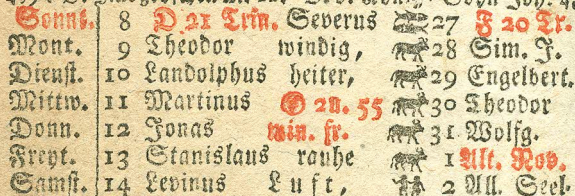 Sonnt. 8 D 21 Trin. Severus 27 F 20 Tr.
Mont. 9 Theodor windig, 28 Sim. J.
Dienst. 10 Landolphus heiter, 29 Engelbert.
Mittw. 11 Martinus 2 U. 55 30 Theodor
Donn. 12 Jonas win. fr. 31 Wolfg.
Freyt. 13 Stanislaus rauhe 1 Alt. Nov.
Samst. 14 Levinus Luft, 2 All. Seel.